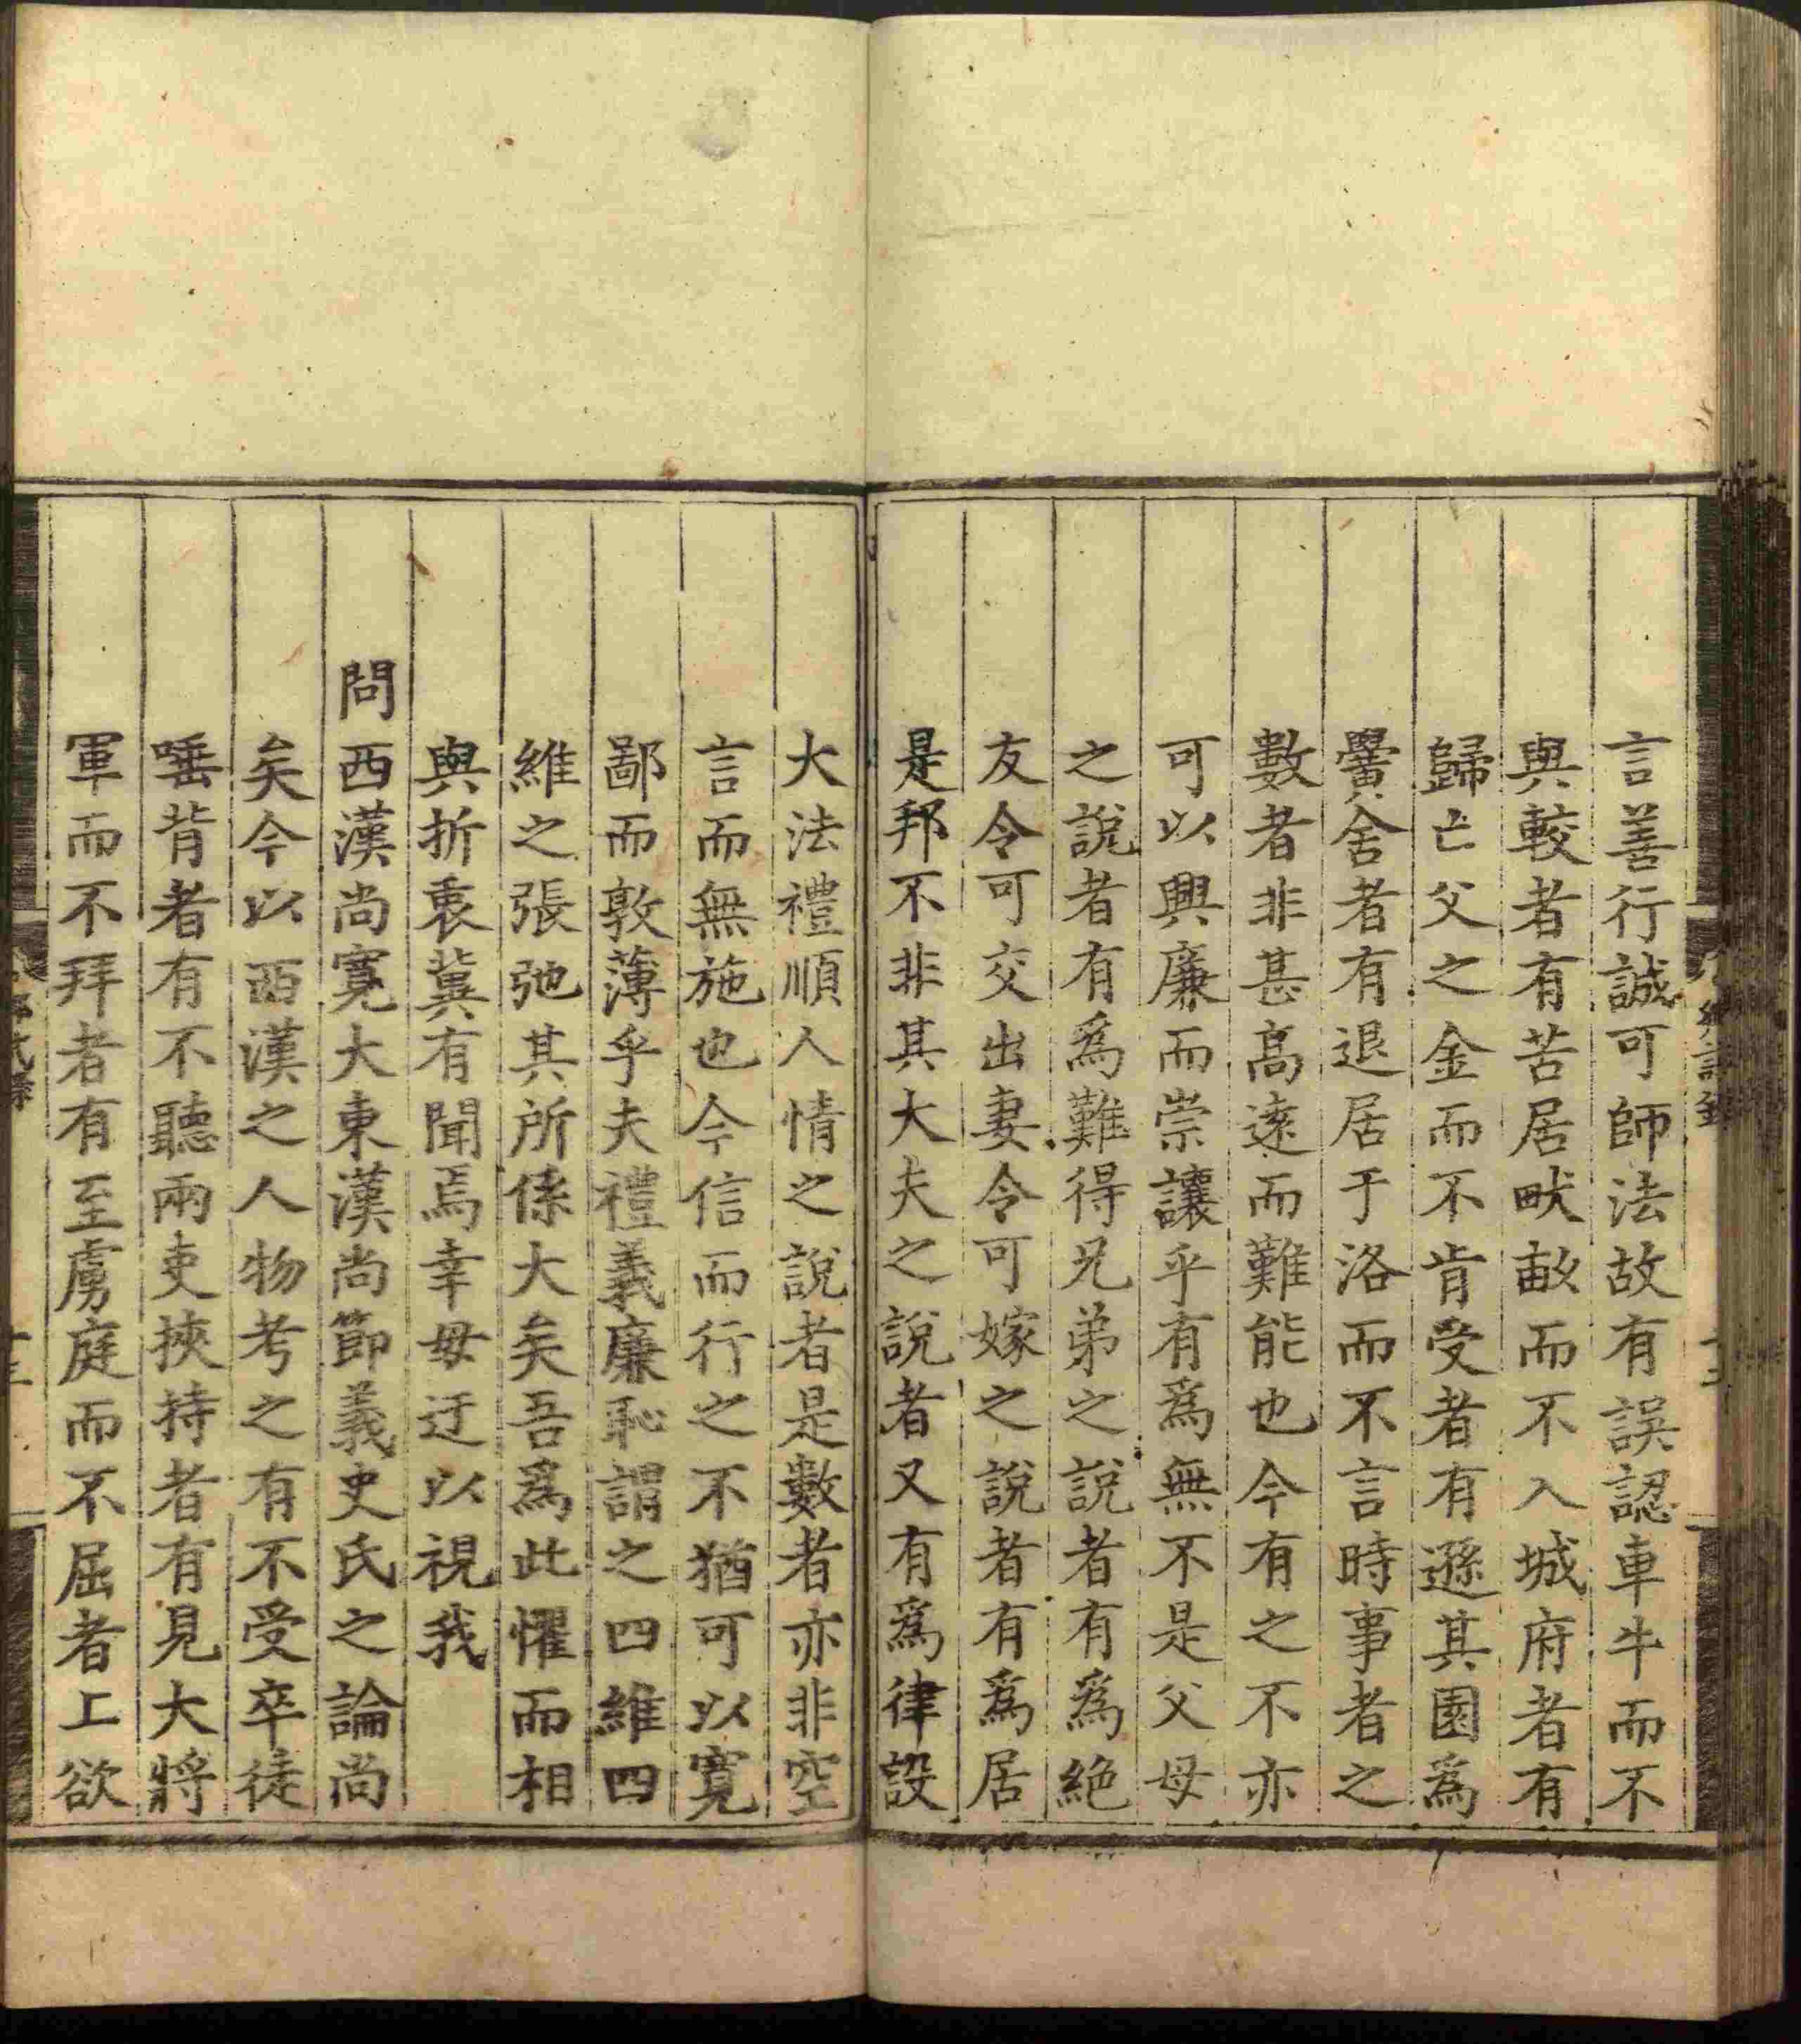 言善行誠可師法故有誤認車牛而不
與較者有苦居畎畝而不入城府者有
歸亡父之金而不肯受者有遜其園爲
黌舍者有退居于洛而不言時事者之
數者非甚高遠而難能也今有之不亦
可以興廉而崇讓乎有爲無不是父母
之說者有爲難得兄弟之說者有爲絶
友令可交出妻令可嫁之說者有爲居
是邦不非其大夫之說者又有爲律設
大法禮順人情之說者是數者亦非空
言而無施也今信而行之不猶可以寛
鄙而敦薄乎夫禮義廉恥謂之四維四
維之張弛其所係大矣吾爲此懼而相
與折衷冀有聞焉幸毋迂以視我
問西漢尚寛大東漢尚節義史氏之論尚
矣今以西漢之人物考之有不受卒徒
唾背者有不聽兩吏挾持者有見大將
軍而不拜者有至虜庭而不屈者上欲